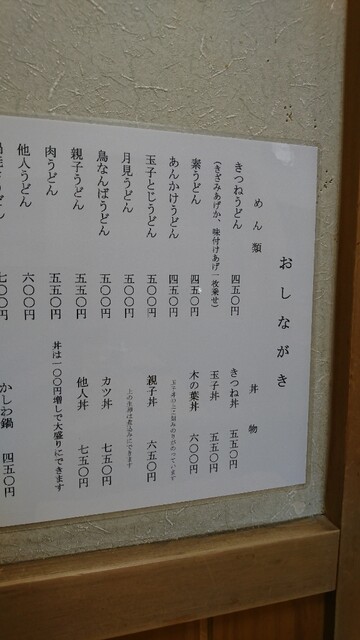 おしながき
めん類
きつねうどん 四五〇円
(きざみあげか、味付けあげ一枚乗せ)
素うどん 四五〇円
あんかけうどん 四五〇円
玉子とじうどん 五〇〇円
月見うどん 五〇〇円
鳥なんばうどん 五五〇円
親子うどん 五五〇円
肉うどん 五五〇円
他人うどん 六〇〇円
うどん 七〇〇円
丼物
きつね丼 五五〇円
玉子丼 五五〇円
木の葉丼 六〇〇円
親子丼 六五〇円
カツ丼 七五〇円
他人丼 七五〇円
丼は一〇〇円増しで大盛りにできます
かしわ鍋 四五〇円